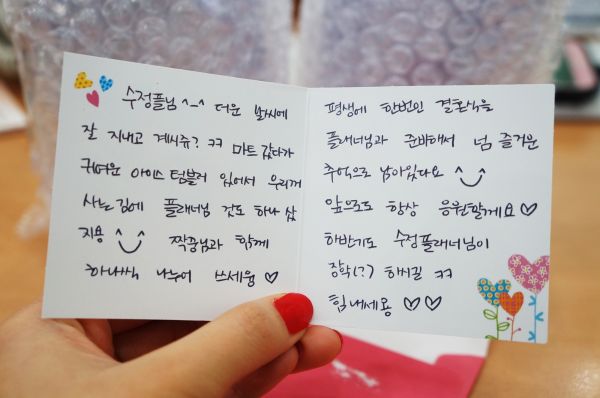 수정플님 ^-^ 더운 날씨에
잘 지내고 계시쥬? ㅋㅋ 마트 갔다가
귀여운 아이스 텀블러 있어서 우리꺼
사는 김에 플래너님 것도 하나 샀
지용 짝꿍님과 함께
하나씩 나누어 쓰세용 ♡
평생에 한번인 결혼식을
플래너님과 준비해서 넘 즐거운
추억으로 남아있다요 ^‿^
앞으로도 항상 응원할게요 ♡
하반기도 수정플래너님이
장악(?) 해버린 ㅋㅋ
힘내세용 ♡♡